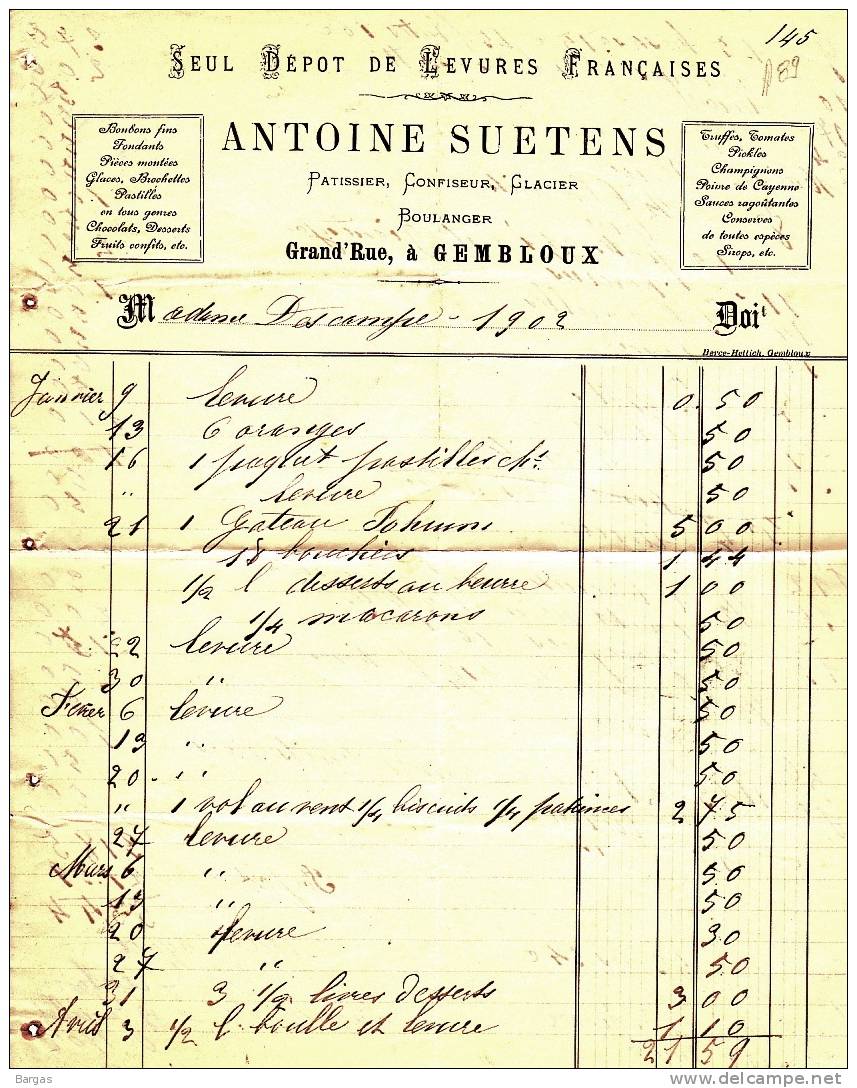 145
A89
SEUL DÉPOT DE LEVURES FRANÇAISES
Bonbons fins
Fondants
Pièces montées
Glaces, Brochettes
Pastilles
en tous genres
Chocolats, Desserts
Fruits confits, etc.
ANTOINE SUETENS
PATISSIER, CONFISEUR, GLACIER
BOULANGER
Grand'Rue, à GEMBLOUX
Truffes, Tomates
Pickles
Champignons
Poivre de Cayenne
Sauces ragoûtantes
Conserves
de toutes espèces
Sirops, etc.
Madame Descampe - 1902 Doit
Berce-Hettich, Gembloux
Janvier 9 levure 0.50
13 6 oranges 50
16 1 paquet pastilles cht 50
" levure 50
21 1 Gateau 5 00
18 bouchées 1 44
1/2 l desserts au beurre 1 00
1/4 macarons 50
22 levure 50
30 " 50
Fevrier 6 levure 50
13 " 50
20 - " 50
" 1 vol au vent 1/4 biscuits 1/4 patiences 2 75
27 levure 50
Mars 6 " 50
13 " 50
20 levure 30
27 " 50
31 3 1/2 livres desserts 3 00
Avril 3 1/2 l. et levure 1 10
21 59
Bargas
delcampe.net